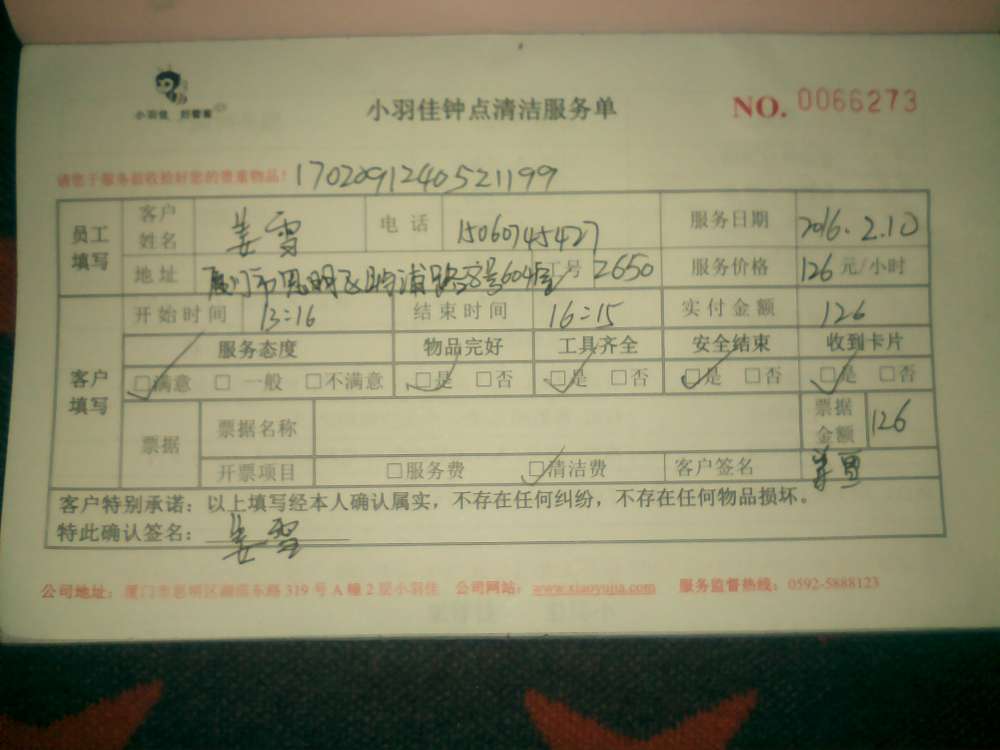 小羽佳 好管家
小羽佳钟点清洁服务单
NO. 0066273
请您于服务前收拾好您的贵重物品! 1702091240521199
员工填写 客户姓名 姜雪 电话 15060745427 服务日期 2016.2.10
地址 厦门市思明区 浦路 号604室 工号 2650 服务价格 126元/小时
客户填写 开始时间 13:16 结束时间 16:15 实付金额 126
服务态度 物品完好 工具齐全 安全结束 收到卡片
□满意 □一般 □不满意 □是 □否 □是 □否 □是 □否 □是 □否
票据 票据名称 票据金额 126
开票项目 □服务费 □清洁费 客户签名 姜雪
客户特别承诺：以上填写经本人确认属实，不存在任何纠纷，不存在任何物品损坏。
特此确认签名： 姜雪
公司地址：厦门市思明区湖滨东路319号A幢2层小羽佳 公司网站：www.xiaoyujia.com 服务监督热线：0592-5888123